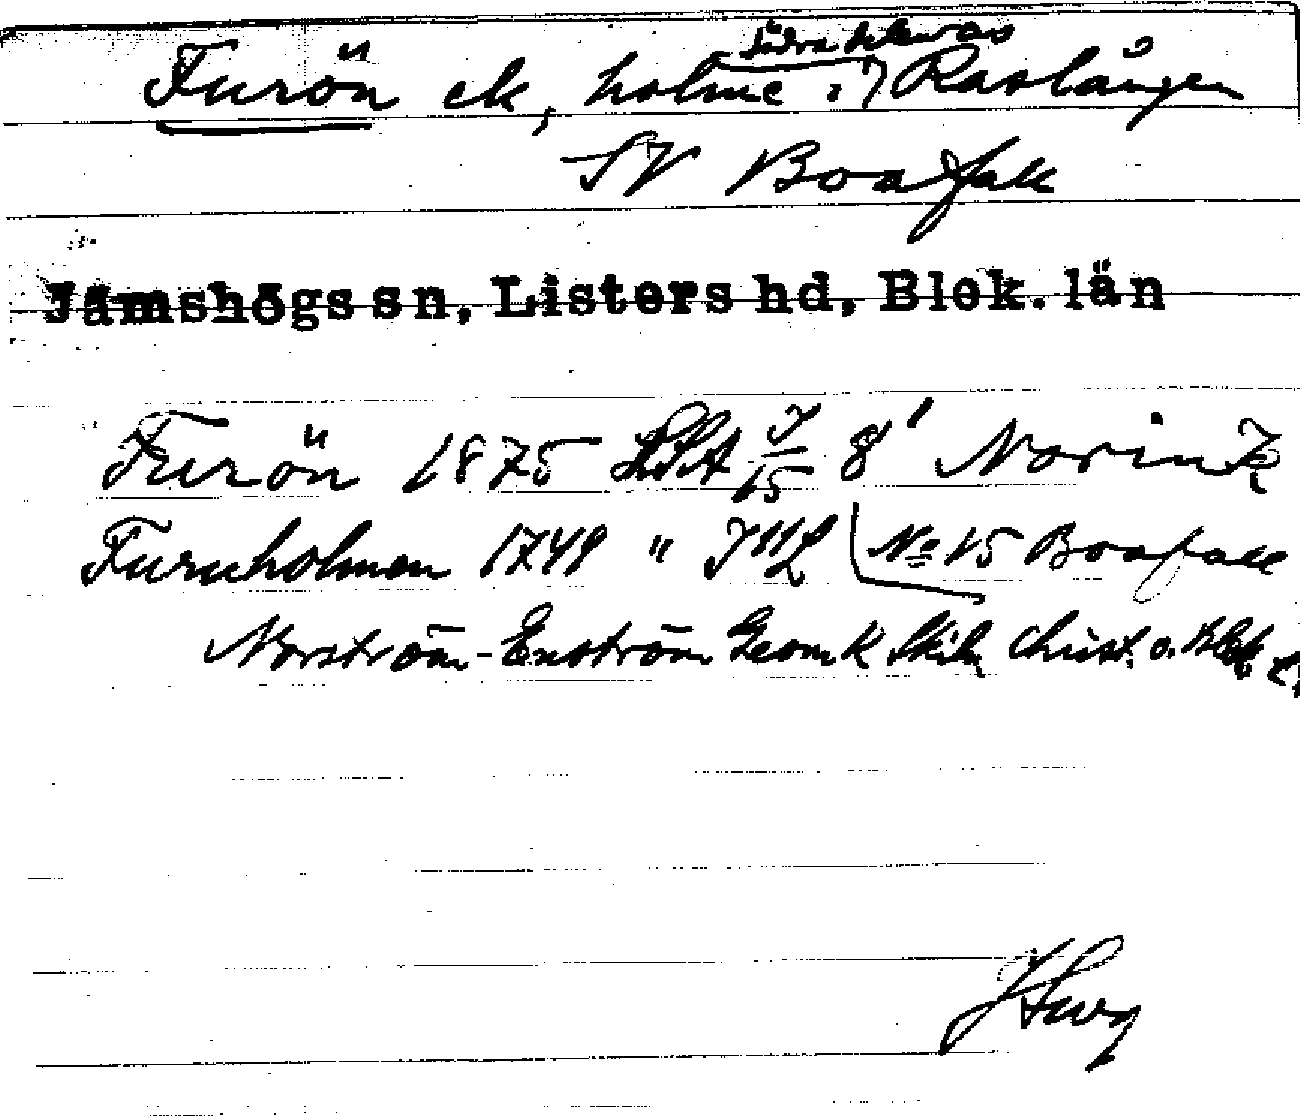 södra delen av
Furön ek, holme i Raslången
SV Boafall
Jämshögs sn, Listers hd, Blek. län
Furön 1875 LSA J/15 8' Norin K
Furuholmen 1749 " J11L № 15 Boafall
Norström-Enström Geom K Skiln Christ. o. Blek